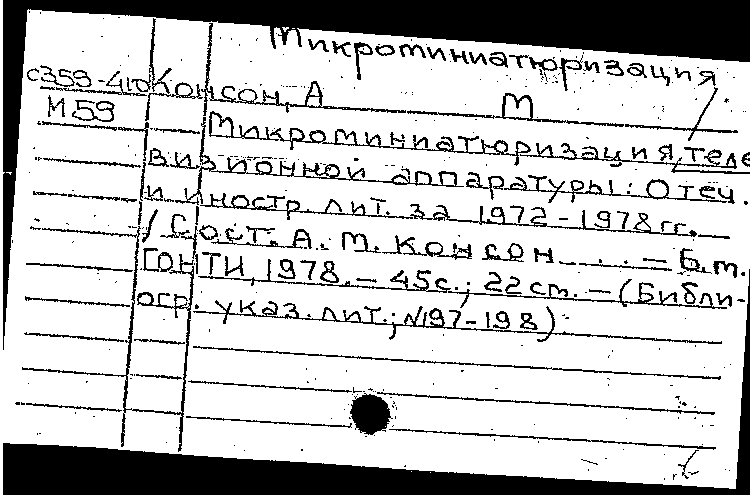 Микроминиатюризация
с359-410 Консон, А М
М59
Микроминиатюризация теле
визионной аппаратуры: Отеч.
и иностр. лит. за 1972-1978 гг.
/ Сост. А. М. Консон... – Б.м.
ГОНТИ, 1978. – 45с.; 22 см. – (Библи-
огр. указ. лит.; №197-198)